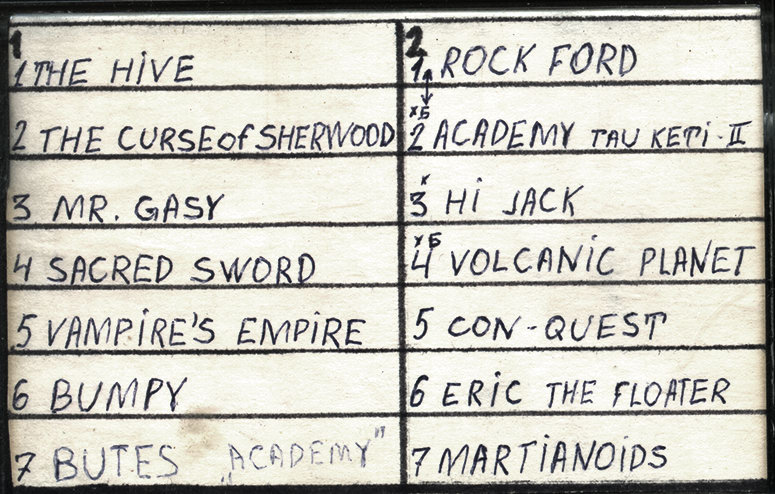 1
1 THE HIVE
2 THE CURSE of SHERWOOD
3 MR. GASY
4 SACRED SWORD
5 VAMPIRE'S EMPIRE
6 BUMPY
7 BUTES „ACADEMY"
2
1 ROCK FORD
x Б
2 ACADEMY TAU KETI-II
x
3 HI JACK
x Б
4 VOLCANIC PLANET
5 CON-QUEST
6 ERIC THE FLOATER
7 MARTIANOIDS